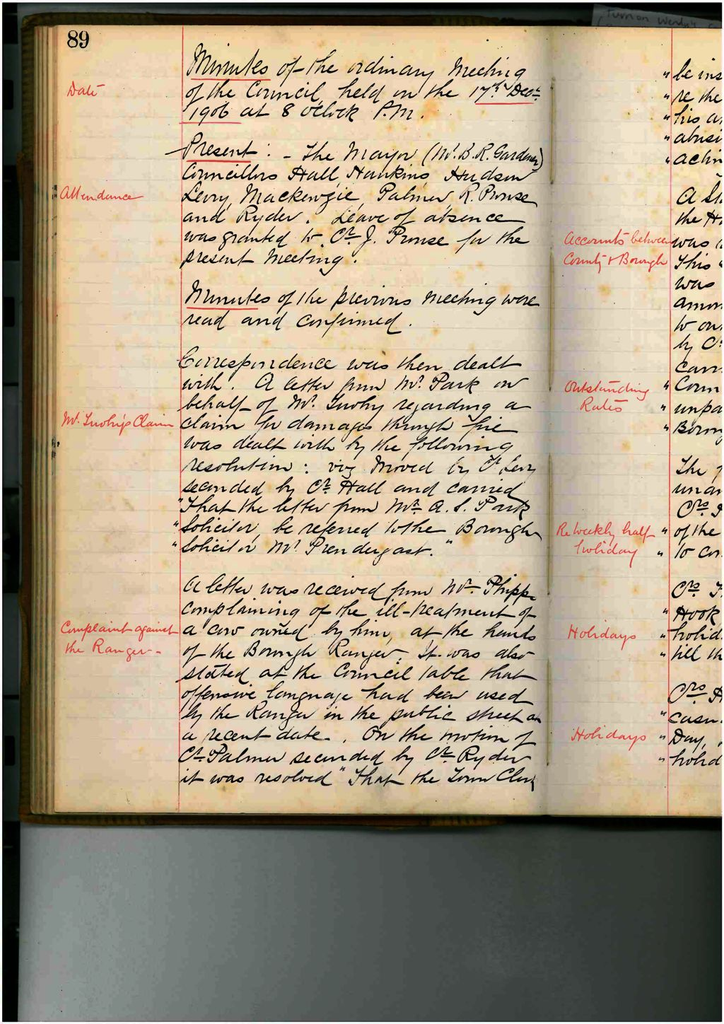 89
Date
Minutes of the ordinary Meeting
of the Council, held on the 17th Decr
1906 at 8 o'clock P.M.
Attendance
Present: - The Mayor (Mr. B. R. Gardner)
Councillors Hall Hawkins Hudson
Levy, Mackenzie, Palmer, R. Prouse
and Ryder. Leave of absence
was granted to Cr. J. Prouse for the
present Meeting.
Minutes of the previous Meeting were
read and confirmed.
Correspondence was then dealt
with. A letter from Mr. Park on
behalf of Mr. regarding a
Mr. Claim
claim for damages through fire
was dealt with by the following
resolution: viz Moved by Cr. Levy
seconded by Cr. Hall and carried
"That the letter from Mr. A. S. Park
"Solicitor be referred to the Borough
"Solicitor Mr. Prendergast."
A letter was received from Mr. Phipps
complaining of the ill-treatment of
Complaint against
the Ranger -
a cow owned by him, at the hands
of the Borough Ranger. It was also
stated at the Council table that
offensive language had been used
by the Ranger in the public street on
a recent date. On the motion of
Cr. Palmer seconded by Cr. Ryder
it was resolved "That the Town Clerk
"be ins
"re the
"his a
"abusi
"actin
A
the H
Accounts between
County & Borough
was
This
was
amou
to ou
by Cr
carri
Outstanding
Rates
"Coun
"unpa
"Borou
The
unan
Crs
Re Weekly half
holiday
"of the
"to co
Crs
"Hook
Holidays
"holid
"till th
Crs
"casu
Holidays
"Day,
"holid